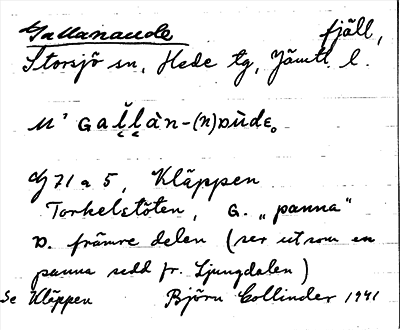 Gallanaude fjäll,
Storsjö sn, Hede tg, Jämtl. l.
M' Gaḷḷàn-(n)DùdE。
G 71 a 5, Kläppen
Torkelstöten, G. „panna"
D. främre delen (ser ut som en
panna sedd fr. Ljungdalen)
Se Kläppen Björn Collinder 1941